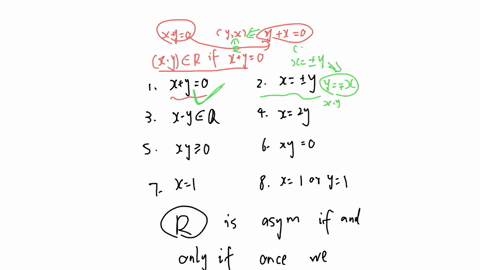 x+y=0 (y,x) y+x=0
(x,y)∈R if x+y=0 x=±y
1. x+y=0 2. x=±y y=∓x
x,y
3. x-y∈Q 4. x=2y
5. xy≥0 6. xy=0
7. x=1 8. x=1 or y=1
R is asym if and
only if once we